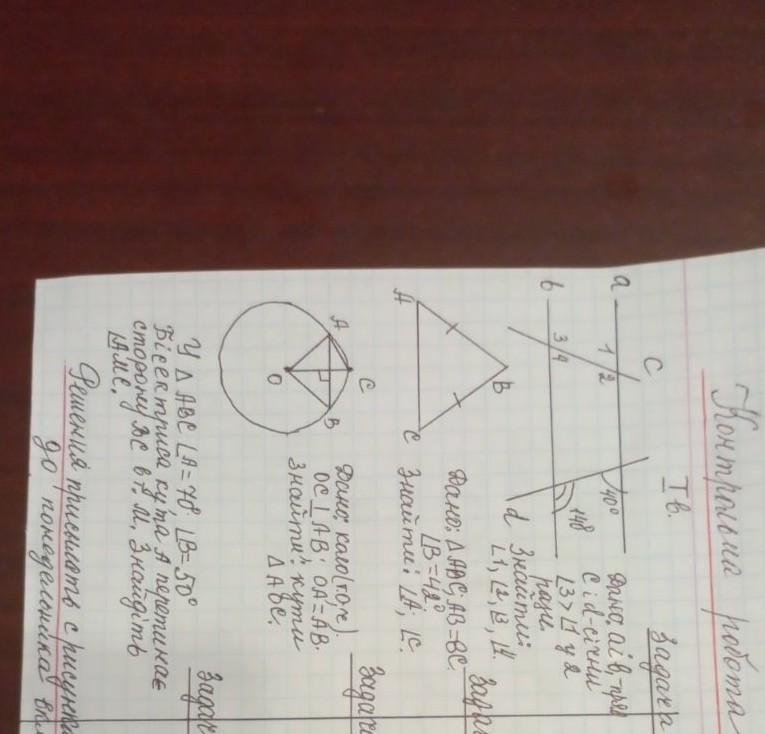 Контрольна робота
I в.
Задача
a
c
1 2
40°
b
3 4
140°
d
Дано, a i b, - пря
c i d - січні
∠3 > ∠1 у 2
рази.
Знайти:
∠1, ∠2, ∠3, ∠4.
Зада
B
A
C
Дано: △ABC; AB = BC.
∠B = 42°
Знайти: ∠A; ∠C.
Задач
A
C
O
B
Дано: коло (т.О; r).
OC ⊥ AB; OA = AB.
Знайти: кути
△ABC.
Задач
У △ABC ∠A = 70° ∠B = 50°
Бісектриса кута A перетинає
сторону BC в т. M. Знайдіть
∠AMC.
Решения присылать с рисунка
до понедельника